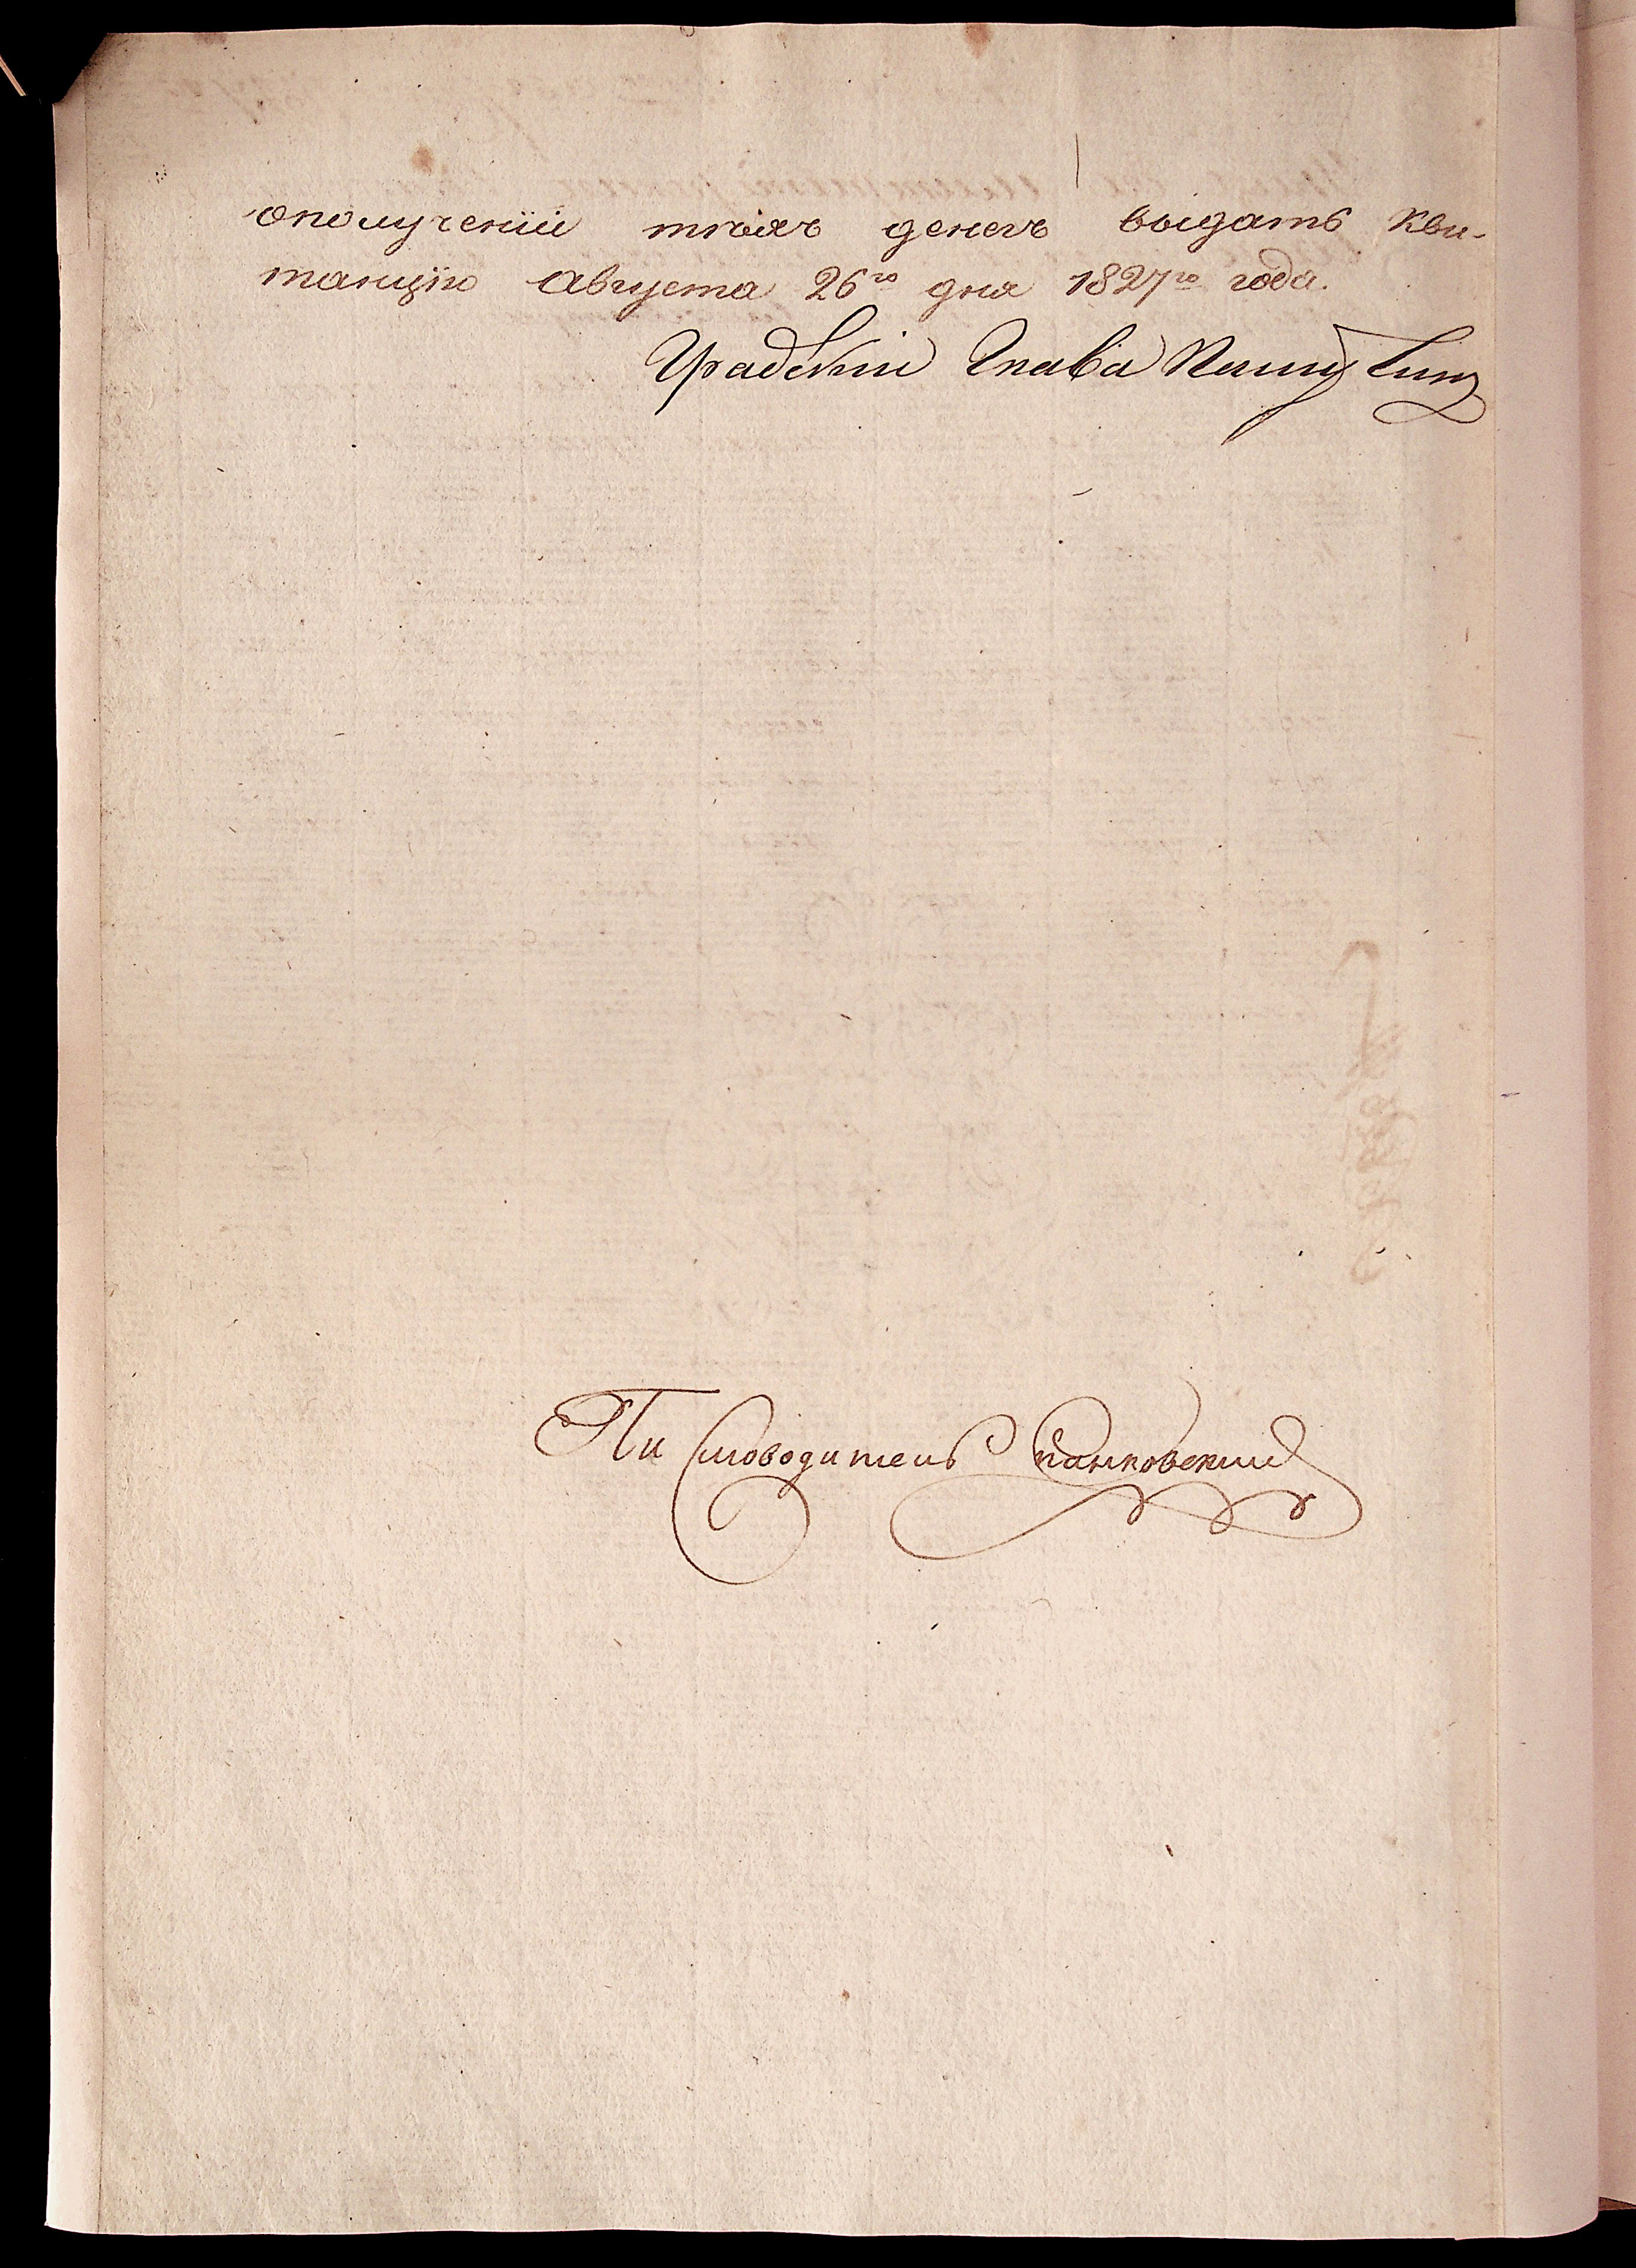 ополученіи тѣхъ денегъ выдать кви-
танцію Августа 26го дня 1827го года.
Градскій Глава
Писмоводитель